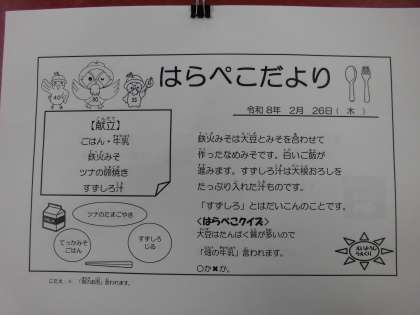 はらぺこだより
令和8年 2月 26日( 木 )
【献立】
ごはん・牛乳
鉄火みそ
ツナの卵焼き
すずしろ汁
鉄火みそは大豆とみそを合わせて
作ったなめみそです。白いご飯が
進みます。すずしろ汁は大根おろしを
たっぷり入れた汁ものです。
「すずしろ」とはだいこんのことです。
<はらぺこクイズ>
大豆はたんぱく質が多いので
「畑の牛乳」言われます。
○か✖か。
ツナのたまごやき
てっかみそ
ごはん
すずしろ
じる
こたえ × 「畑のお肉」言われます。